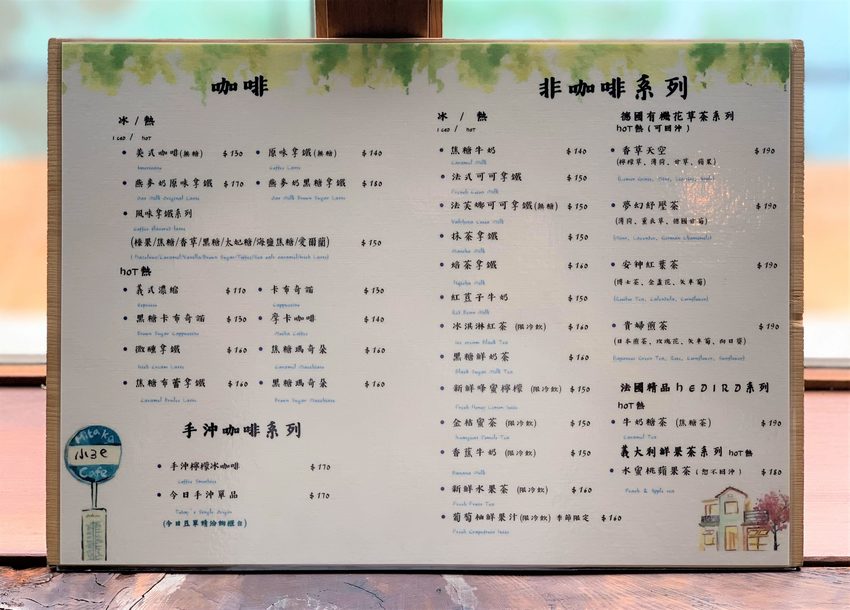 咖啡
冰 / 熱
ICED / HOT
• 美式咖啡(無糖) $130
Americano
• 原味拿鐵(無糖) $140
Coffee Latte
• 燕麥奶原味拿鐵 $170
Oat Milk Original Latte
• 燕麥奶黑糖拿鐵 $180
Oat Milk Brown Sugar Latte
• 風味拿鐵系列
Coffee flavored latte
(榛果/焦糖/香草/黑糖/太妃糖/海鹽焦糖/愛爾蘭) $150
HOT 熱
• 義式濃縮 $110
Espresso
• 卡布奇諾 $130
Cappuccino
• 黑糖卡布奇諾 $150
Brown Sugar Cappuccino
• 摩卡咖啡 $140
Mocha Coffee
• 微醺拿鐵 $160
Irish Cream Latte
• 焦糖瑪奇朵 $160
Caramel Macchiato
• 焦糖布蕾拿鐵 $160
Caramel Brulee Latte
• 黑糖瑪奇朵 $160
Brown Sugar Macchiato
手沖咖啡系列
• 手沖檸檬冰咖啡 $170
• 今日手沖單品 $170
Today's Single Origin
(今日豆單請洽詢櫃台)
Mitaka
小3e
Cafe
非咖啡系列
冰 / 熱
ICED / HOT
• 焦糖牛奶 $140
Caramel Milk
• 法式可可拿鐵 $150
French Cocoa Milk
• 法芙娜可可拿鐵(無糖) $150
Valrhona Cocoa Milk
• 抹茶拿鐵 $150
Matcha Milk
• 焙茶拿鐵 $160
Hojicha Milk
• 紅荳子牛奶 $150
Red Bean Milk
• 冰淇淋紅茶 (限冷飲) $160
Ice cream Black Tea
• 黑糖鮮奶茶 $160
Black Sugar Milk Tea
• 新鮮蜂蜜檸檬 (限冷飲) $150
Fresh Honey Lemon Juice
• 金桔蜜茶 (限冷飲) $150
Kumquat Honey Tea
• 香蕉牛奶 (限冷飲) $150
Banana Milk
• 新鮮水果茶 (限冷飲) $160
Fresh Fruit Tea
• 葡萄柚鮮果汁(限冷飲) 季節限定 $160
Fresh Grapefruit Juice
德國有機花草茶系列
HOT熱(可回沖)
• 香草天空 $190
(檸檬草、薄荷、甘草、蘋果)
• 夢幻紓壓茶 $190
(薄荷、薰衣草、德國甘菊)
(Mint, Lavender, German Chamomile)
• 安神紅葉茶 $190
(博士茶、金盞花、矢車菊)
(Rooibos Tea, Calendula, Cornflower)
• 貴婦煎茶 $190
(日本煎茶、玫瑰花、矢車菊、向日葵)
(Japanese Green Tea, Rose, Cornflower, Sunflower)
法國精品HEDIRD系列
HOT熱
• 牛奶糖茶 (焦糖茶) $190
Caramel Tea
義大利鮮果茶系列 HOT熱
• 水蜜桃蘋果茶(恕不回沖) $180
Peach & Apple tea